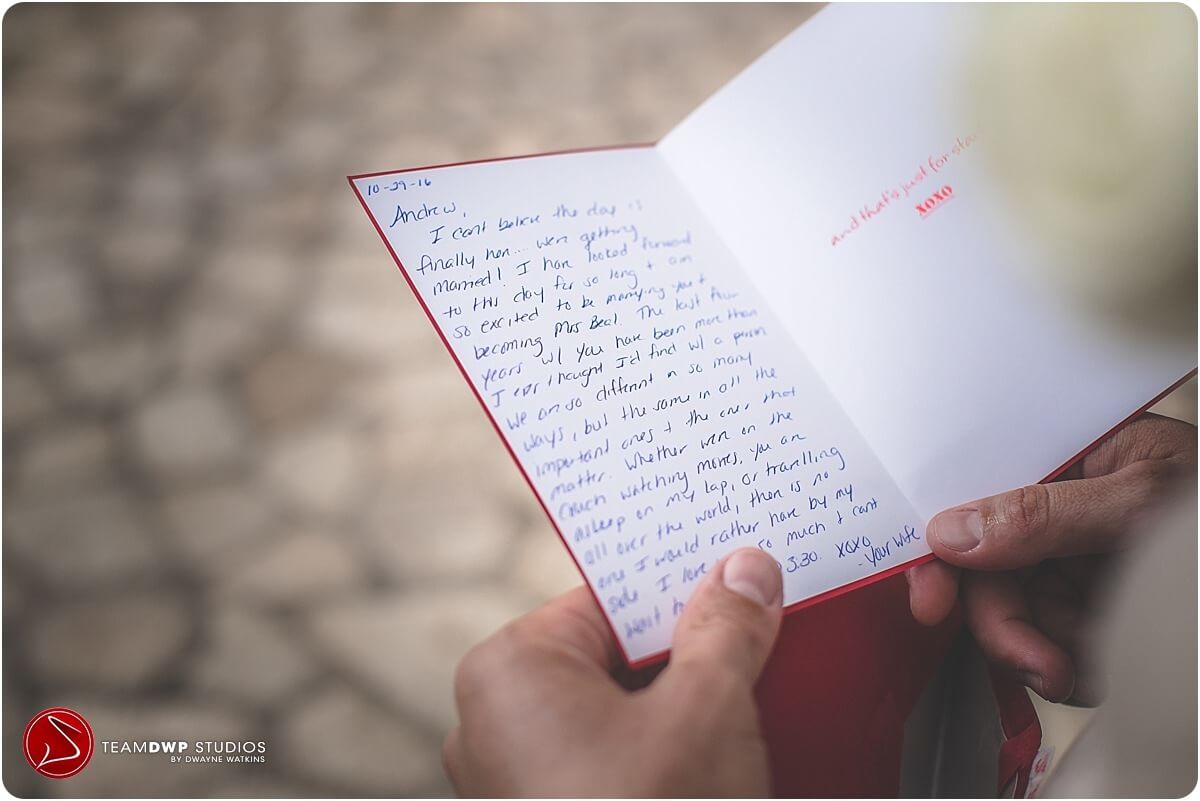 10-29-16
Andrew,
I cant believe the day is
finally here... we're getting
married! I have looked forward
to this day for so long + am
so excited to be marrying you +
becoming Mrs Beal. The last four
years w/ you have been more than
I ever thought I'd find w/ a person
We are so different in so many
ways, but the same in all the
important ones + the ones that
matter. Whether were on the
couch watching movies, you are
asleep on my lap, or travelling
all over the world, there is no
one I would rather have by my
side. I love so much + cant
wait 3:30. XOXO
- Your Wife
and that's just for
XOXO
TEAMDWP STUDIOS
BY DWAYNE WATKINS